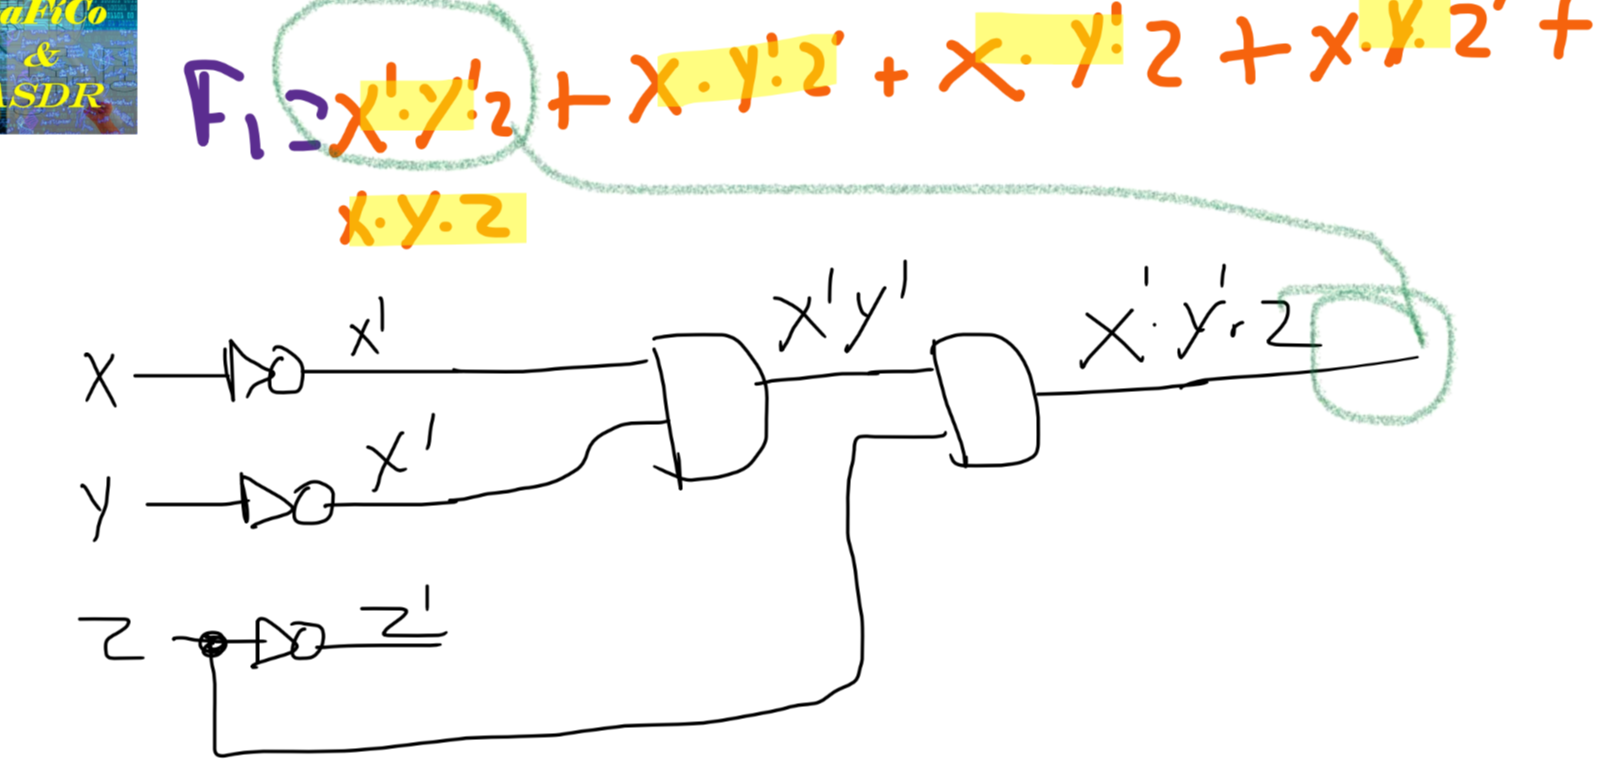 aFiCo
&
ASDR
F1 = x'·y'·z + x·y'·z' + x·y'·z + x·y·z' +
x·y·z
X
x'
x'y'
x'·y'·z
y
x'
z
z'